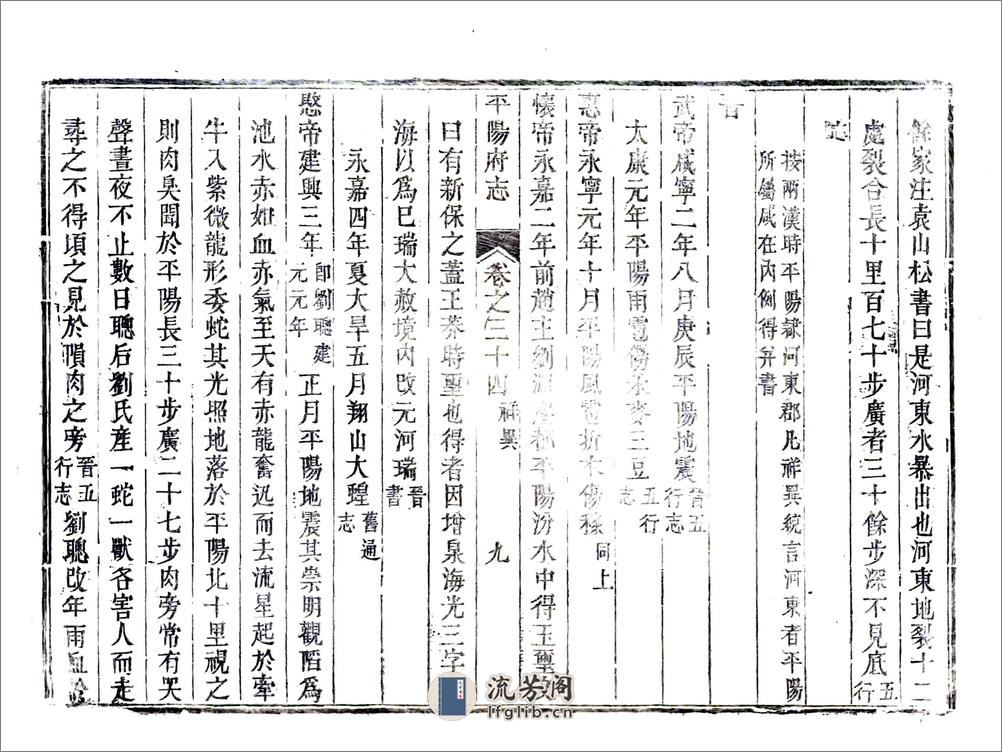 餘家注袁山松書曰是河東水暴出也河東地裂十二
處裂合長十里百七十步廣者三十餘步深不見底五行
志
按兩漢時平陽隸河東郡凡祥異統言河東者平陽
所屬咸在內例得幷書
晉
武帝咸寧二年八月庚辰平陽地震晉五行志
太康元年平陽雨雹傷禾麥三豆五行志
惠帝永寧元年十月平陽風雹折木傷稼同上
懷帝永嘉二年前趙主劉淵 都平陽汾水中得玉璽
平陽府志
卷之三十四
祥異
九
曰有新保之蓋王莽時璽也得者因增泉海光三字
海以爲己瑞大赦境內改元河瑞晉書
永嘉四年夏大旱五月翔山大蝗舊通志
愍帝建興三年卽劉聰建元元年正月平陽地震其崇明觀陷爲
池水赤如血赤氣至天有赤龍奮迅而去流星起於牽
牛入紫微龍形委蛇其光照地落於平陽北十里視之
則肉臭聞於平陽長三十步廣二十七步肉旁常有哭
聲晝夜不止數日聰后劉氏產一蛇一獸各害人而走
尋之不得頃之見於隕肉之旁晉五行志劉聰改年雨血於
流芳阁
lfglib.cn